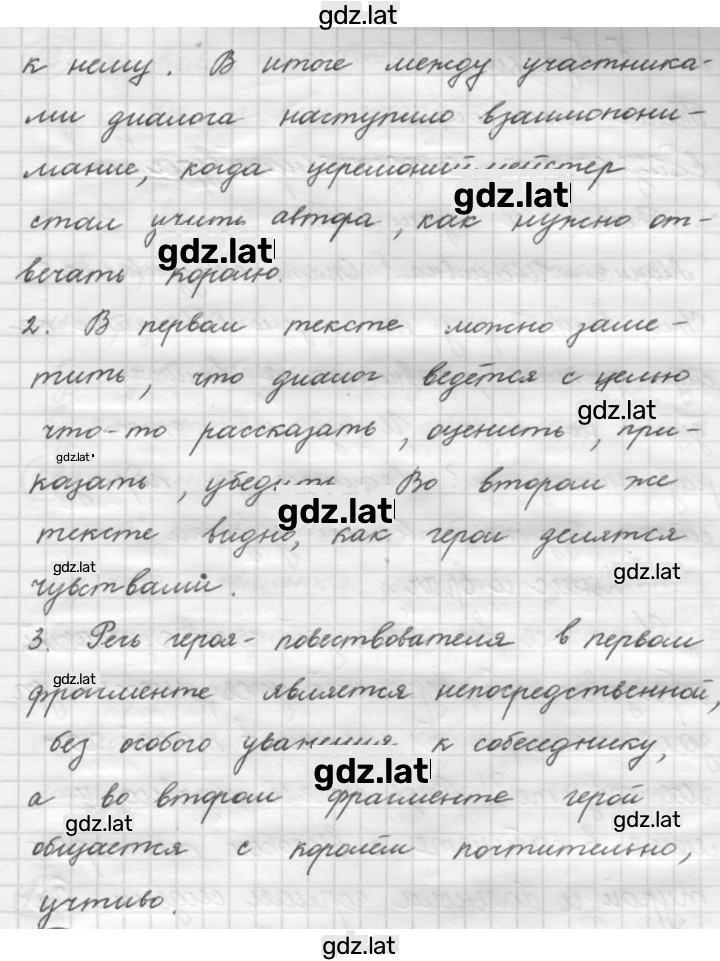 gdz.lat
к нему. В итоге между участника-
ми диалога наступило взаимопони-
мание, когда церемониймейстер
gdz.lat
стал учить автора, как нужно от-
gdz.lat
вечать королю.
2. В первом тексте можно заме-
тить, что диалог ведётся с целью
gdz.lat
что-то рассказать, оценить, при-
gdz.lat
казать, убедить. Во втором же
gdz.lat
тексте видно, как герои делятся
gdz.lat
gdz.lat
чувствами.
3. Речь героя-повествователя в первом
gdz.lat
фрагменте является непосредственной,
без особого уважения к собеседнику,
gdz.lat
а во втором фрагменте герой
gdz.lat
gdz.lat
общается с королём почтительно,
учтиво.
gdz.lat